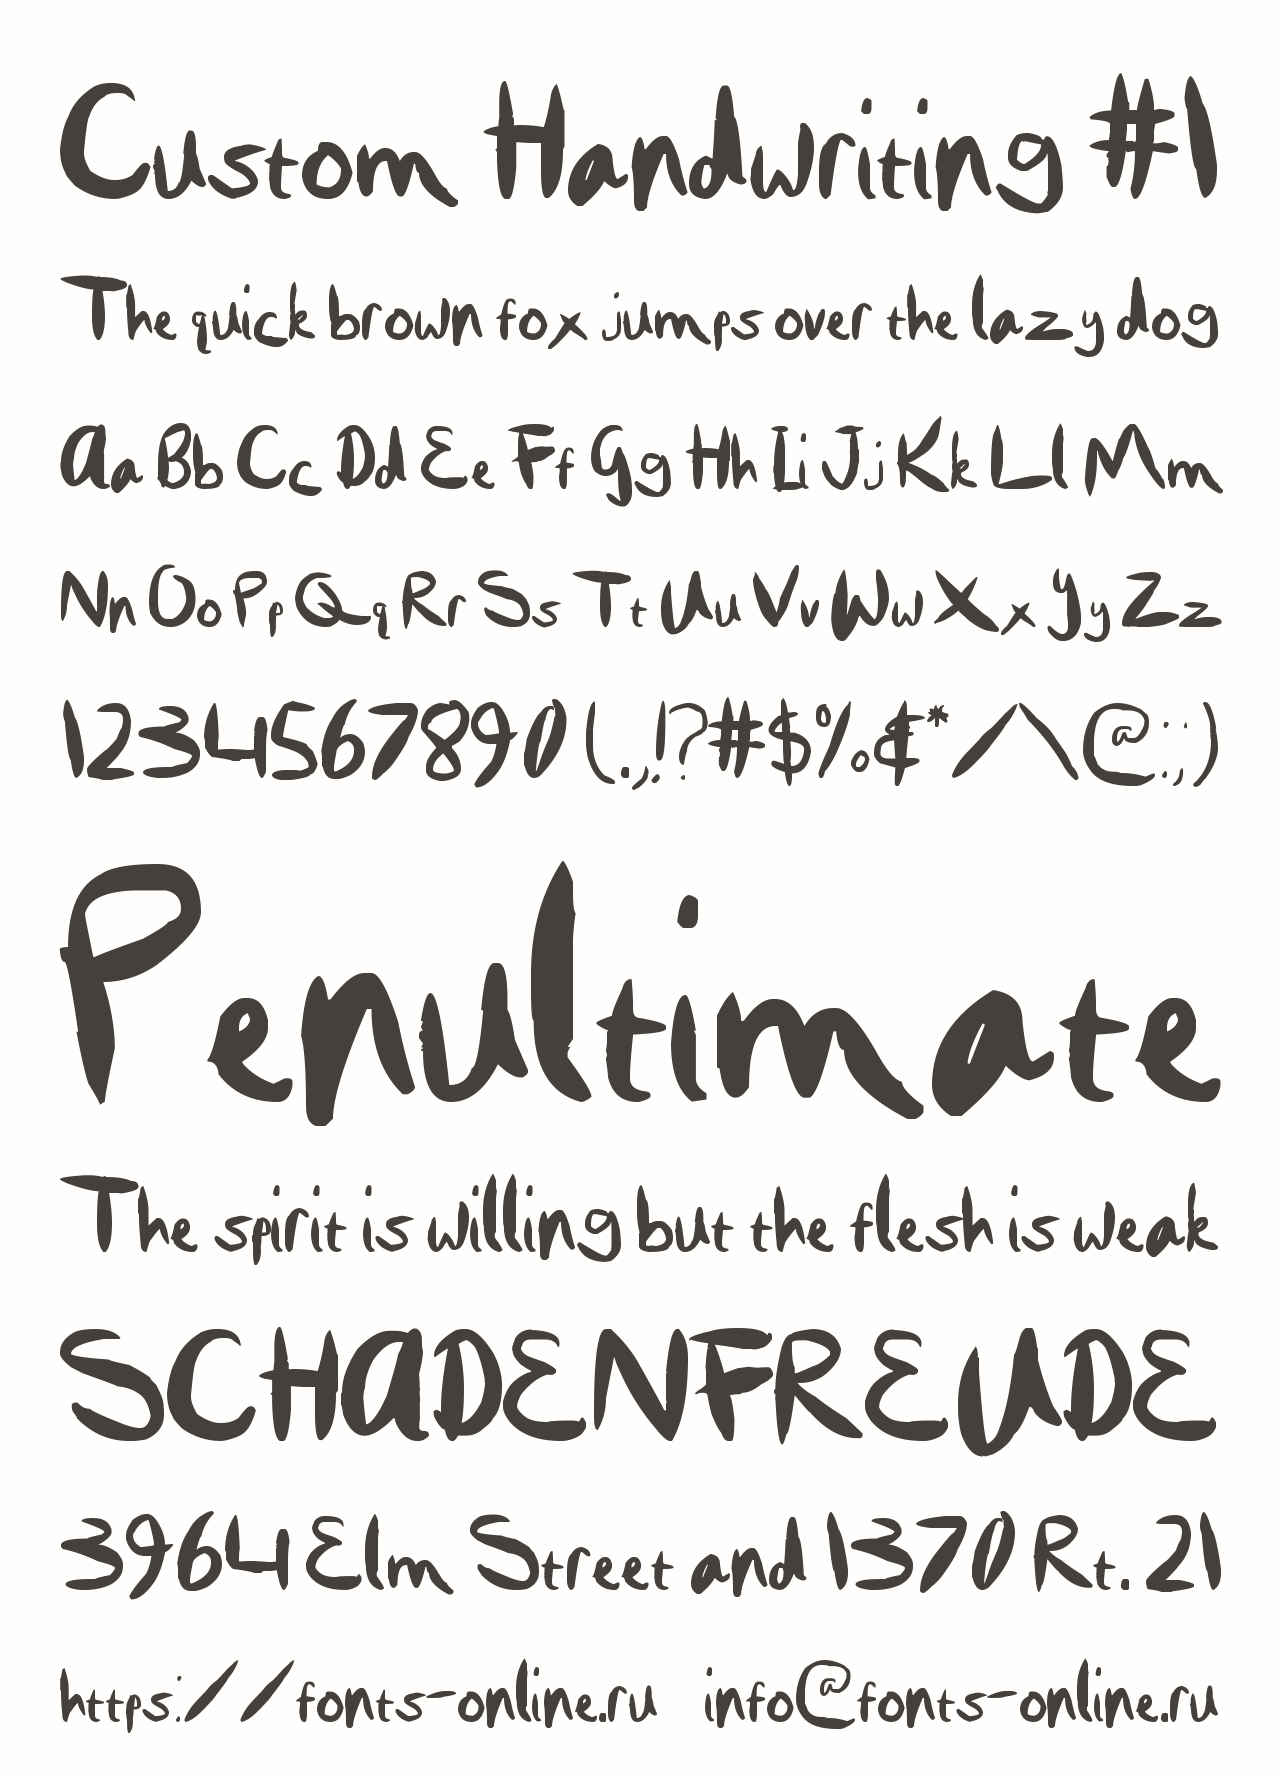 Custom Handwriting #1
The quick brown fox jumps over the lazy dog
Aa Bb Cc Dd Ee Ff Gg Hh Ii Jj Kk Ll Mm
Nn Oo Pp Qq Rr Ss Tt Uu Vv Ww Xx Yy Zz
1234567890 (.,!?#$%&*/\@:;)
Penultimate
The spirit is willing but the flesh is weak
SCHADENFREUDE
3964 Elm Street and 1370 Rt. 21
https://fonts-online.ru info@fonts-online.ru